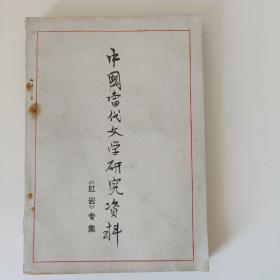 中國當代文学研究资料
《红岩》专集